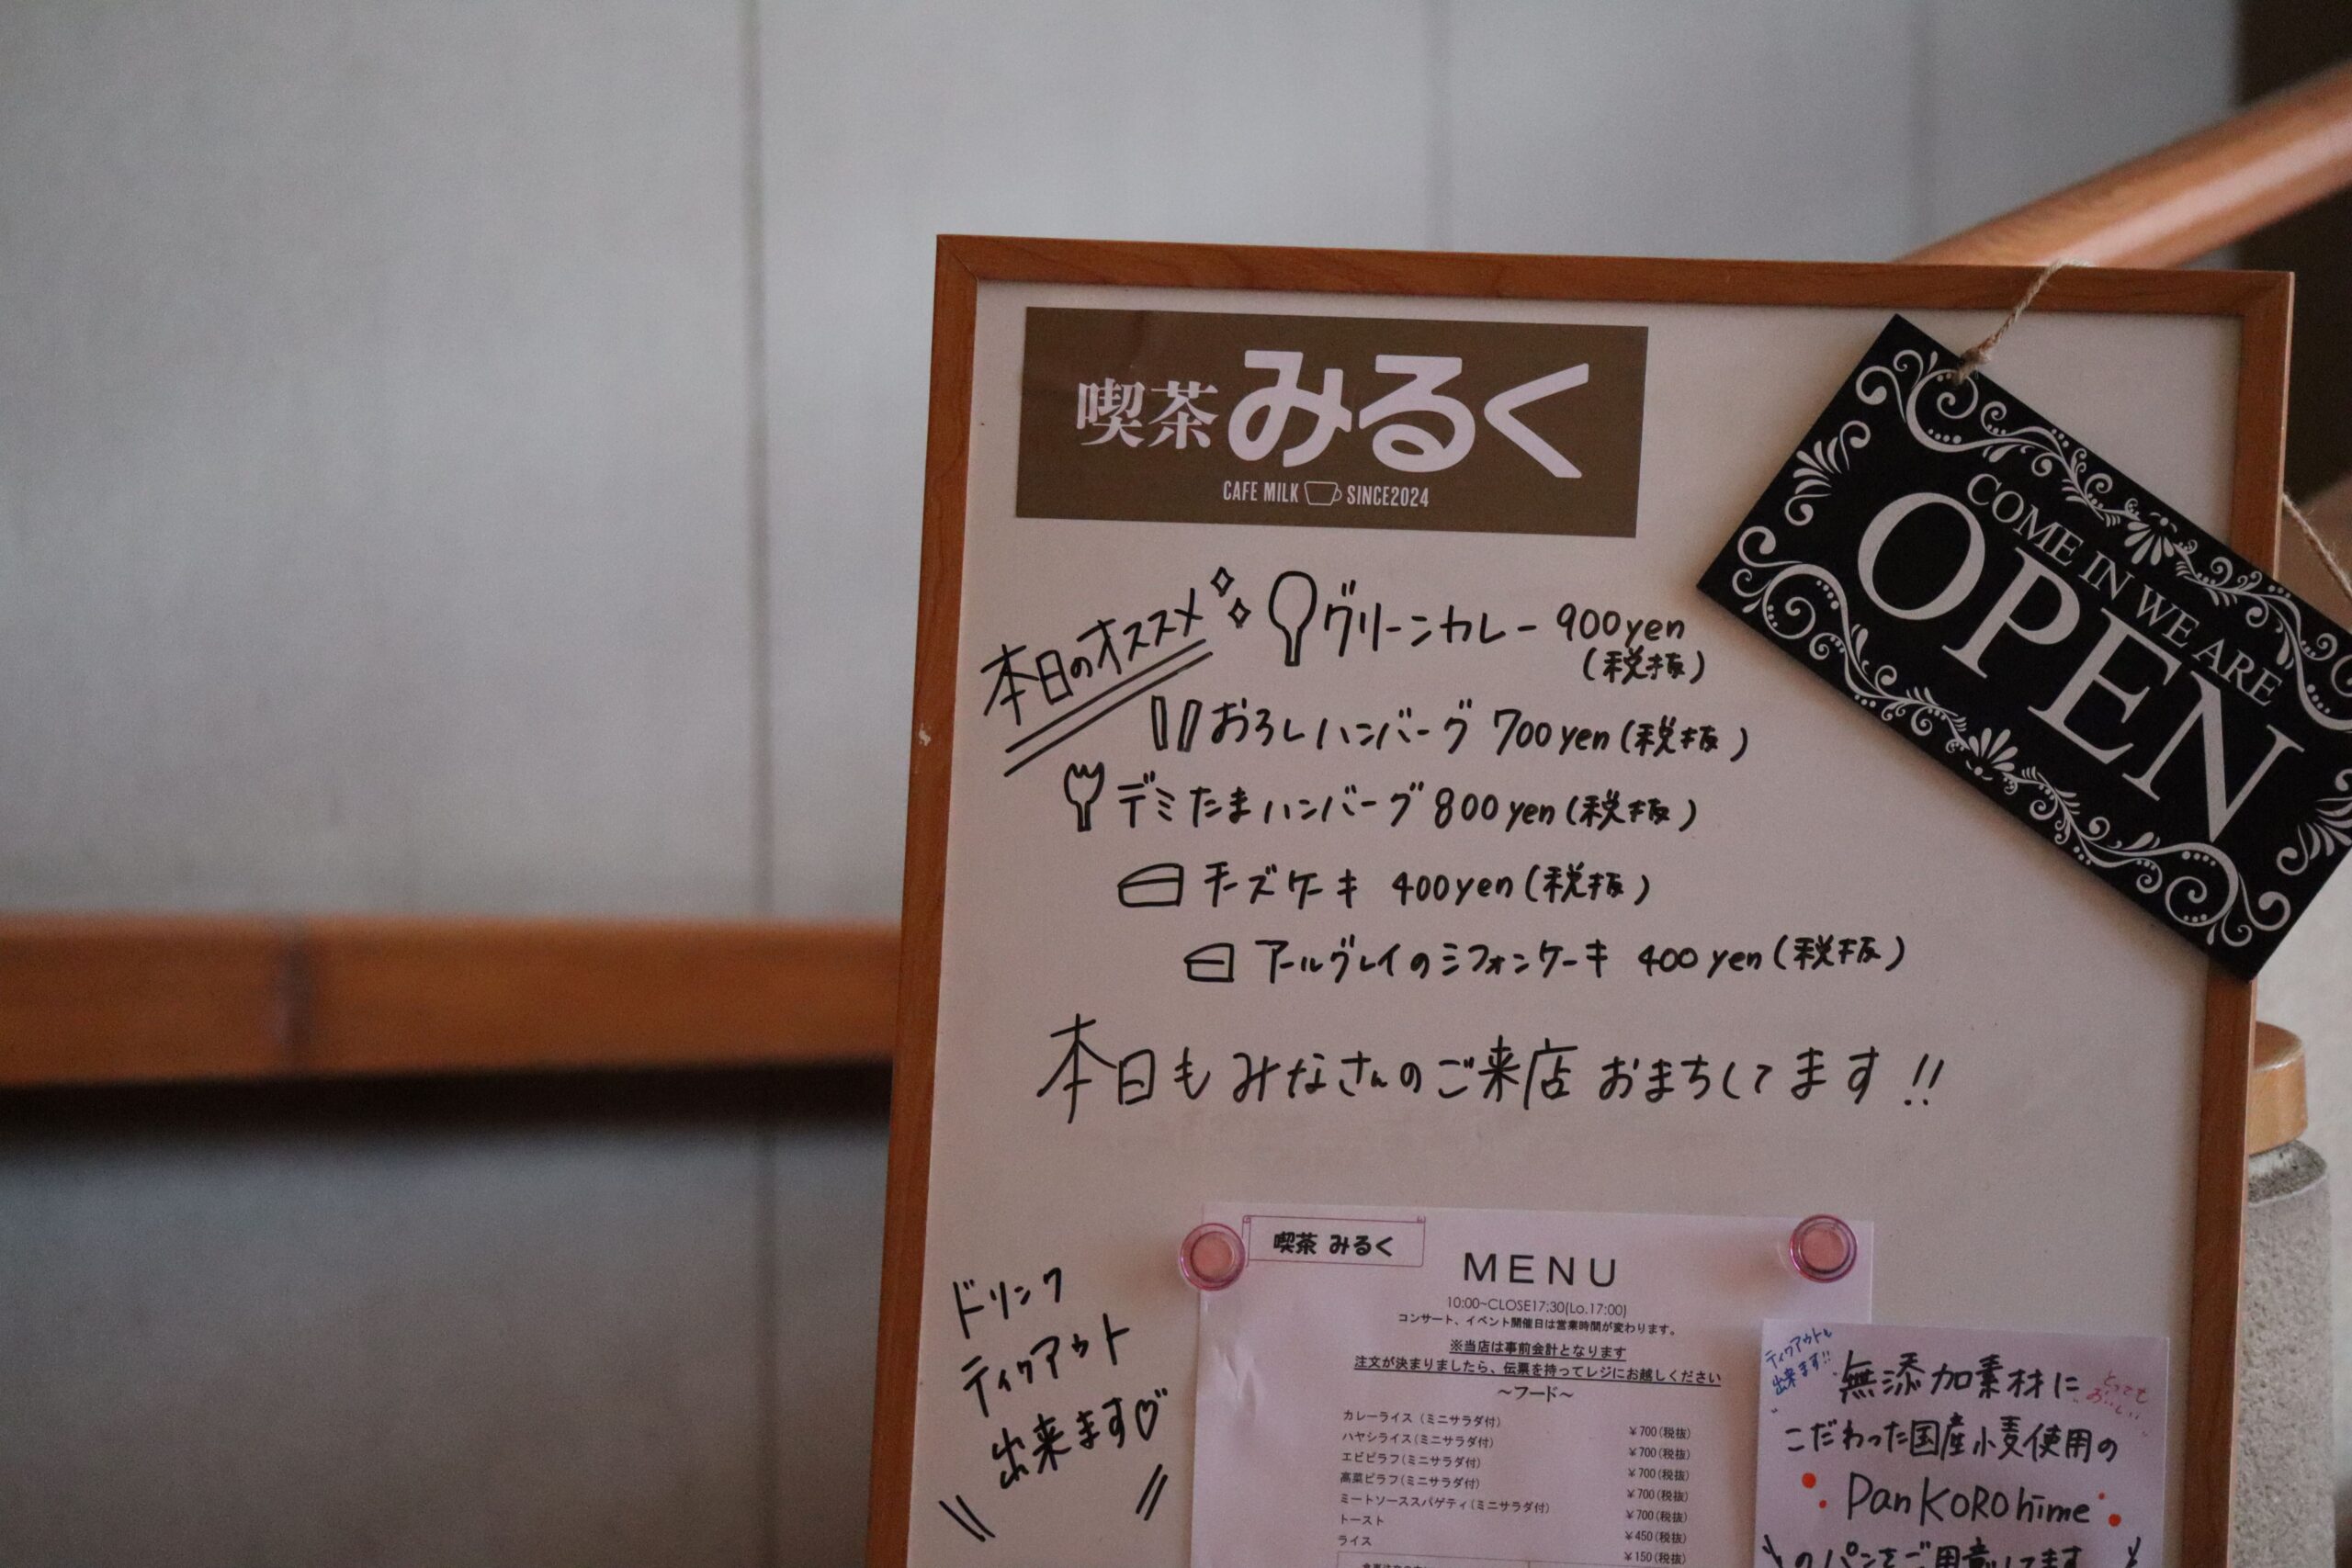 喫茶みるく
CAFE MILK SINCE2024
COME IN WE ARE
OPEN
本日のオススメ
グリーンカレー 900yen
(税抜)
おろしハンバーグ 700yen(税抜)
デミたまハンバーグ 800yen(税抜)
チーズケーキ 400yen(税抜)
アールグレイのシフォンケーキ 400yen(税抜)
本日もみなさんのご来店おまちしてます!!
ドリンク
ティクアウト
出来ます♡
喫茶 みるく
MENU
10:00~CLOSE17:30(Lo.17:00)
コンサート、イベント開催日は営業時間が変わります。
※当店は事前会計となります
注文が決まりましたら、伝票を持ってレジにお越しください
～フード～
カレーライス（ミニサラダ付） ￥700(税抜)
ハヤシライス(ミニサラダ付) ￥700(税抜)
エビピラフ(ミニサラダ付) ￥700(税抜)
高菜ピラフ(ミニサラダ付) ￥700(税抜)
ミートソーススパゲティ(ミニサラダ付) ￥700(税抜)
トースト ￥450(税抜)
ライス ￥150(税抜)
ティクアウトも
出来ます!!
無添加素材に
とっても
おいしい
こだわった国産小麦使用の
Pankorohime
のパンをご用意してます